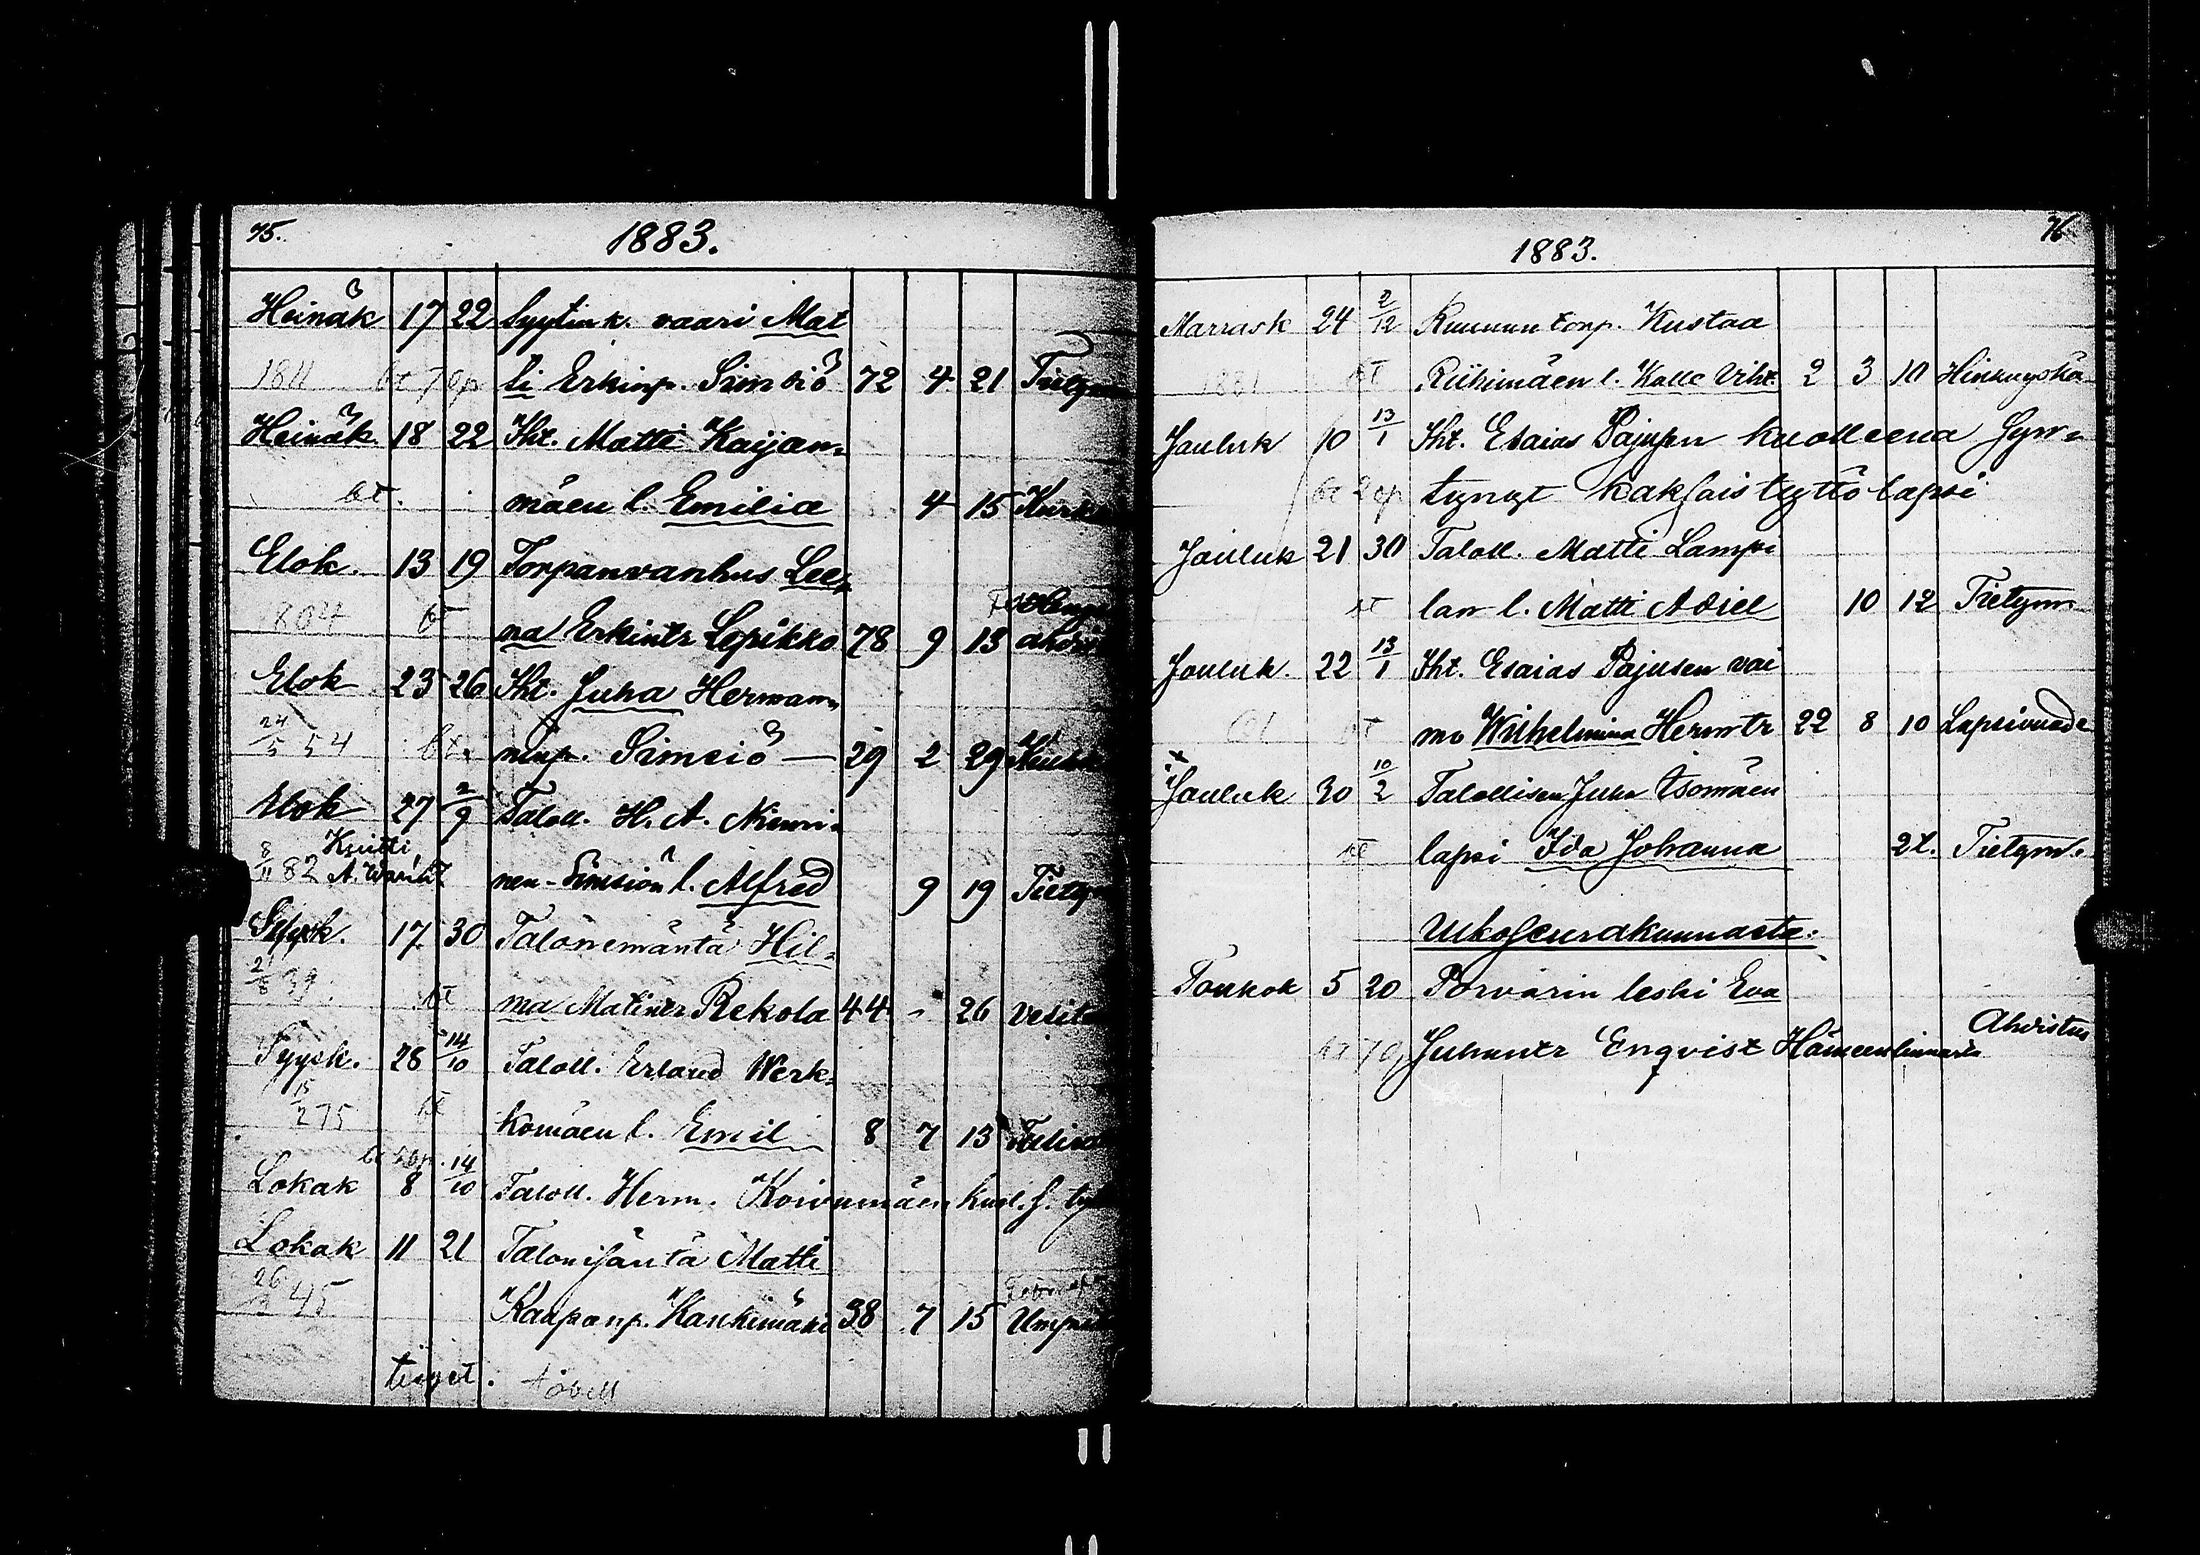 75.
1883.
Heinäk 17 22 Syytink. vaari Mat
1811 bt 7 op ti Erkinp. Simsiö 72 4 21 Tietym
Heinäk. 18 22 Iht. Matti Kaijan-
bt. mäen l. Emilia 4 15 Kurk
Elok. 13 19 Torpanvanhus Lee-
804 bt na Erkintr Lepikko 78 9 13
Elok 23 26 Iht. Juha Herman-
24/5 54 bt. ninp. Simsiö — 29 2 29
Elok 27 2/9 Taloll. H. A. Niemi-
8/11 82 nen-Simsiön l. Alfred 9 19 Tietym
Syysk. 17 30 Talonemäntä Hil-
39 bt ma Matintr Rekola 44 - 26 Vesit
Syysk. 28 14/10 Taloll. Erland Werk-
15/2 75 bt komäen l. Emil 8 7 13
Lokak 8 14/10 Taloll. Herm. Koivumäen kuol. s. ty
Lokak 11 21 Talonisäntä Matti
26 45 Kaaponp. Kaukimäki 38 7 15
76
1883.
Marrask 24 2/12 Ruunun torp. Kustaa
1881 bt Riihimäen l. Kalle Viht. 2 3 10 Hinkuyskä
Jouluk 10 13/1 Iht. Esaias Pajusen kuolleena syn-
bt 2 op tynyt kaksais tyttölapsi
Jouluk 21 30 Taloll. Matti Lampi
bt lan l. Matti Adiel 10 12 Tietym
Jouluk. 22 13/1 Iht. Esaias Pajusen vai
61 bt mo Wilhelmina Hermtr 22 8 10 Lapsivuode
Jouluk 30 10/2 Talollisen Juha Isomäen
bt lapsi Ida Johanna 2t. Tietym.
Ulkoseurakunnasta:
Toukok 5 20 Porvarin leski Eva
Juhantr Enqvist Hämeenlinnasta Ahdistus